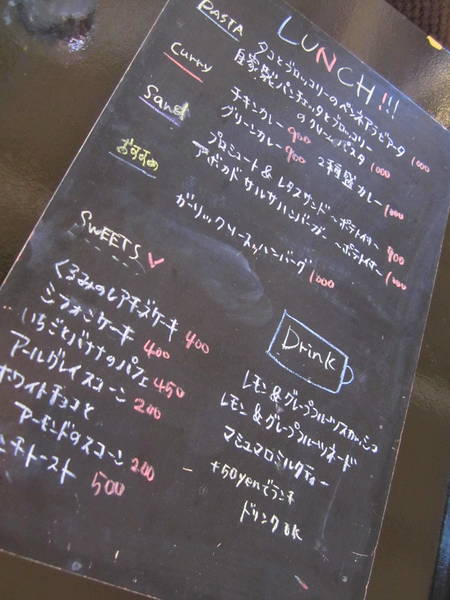 LUNCH!!!
PASTA
タコとブロッコリーのペンネアラビアータ 1000
自家製パンチェッタとブロッコリー
のクリームパスタ 1000
Curry
チキンカレー 900 2種盛カレー 1000
グリーンカレー 900
Sand
プロシュート & レタスサンド ~ポテトイサラー 900
アボカドサルサハンバーガー ~ポテトイサラー 1000
おすすめ
ガーリックソースハンバーグ 1000
SWEETS
くるみのレアチーズケーキ 400
シフォンケーキ 400
いちごとバナナのパフェ 450
アールグレイスコーン 200
ホワイトチョコと
アーモンドのスコーン 200
ンチトースト 500
Drink
レモン&グレープフルーツスカッシュ
レモン&グレープフルーツネード
マシュマロミルクティー
+50yenでランチ
ドリンクOK